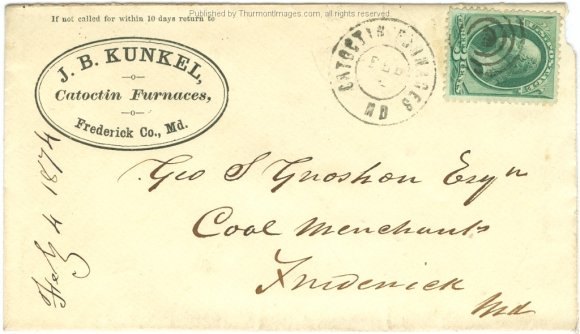 Published by ThurmontImages.com, all rights reserved
If not called for within 10 days return to
J. B. KUNKEL,
Catoctin Furnaces,
Frederick Co., Md.
CATOCTIN FURNACES
FEB
MD
Feb 4 1874
Geo S Gnoshon Esqr
Coal Merchants
Frederick
Md